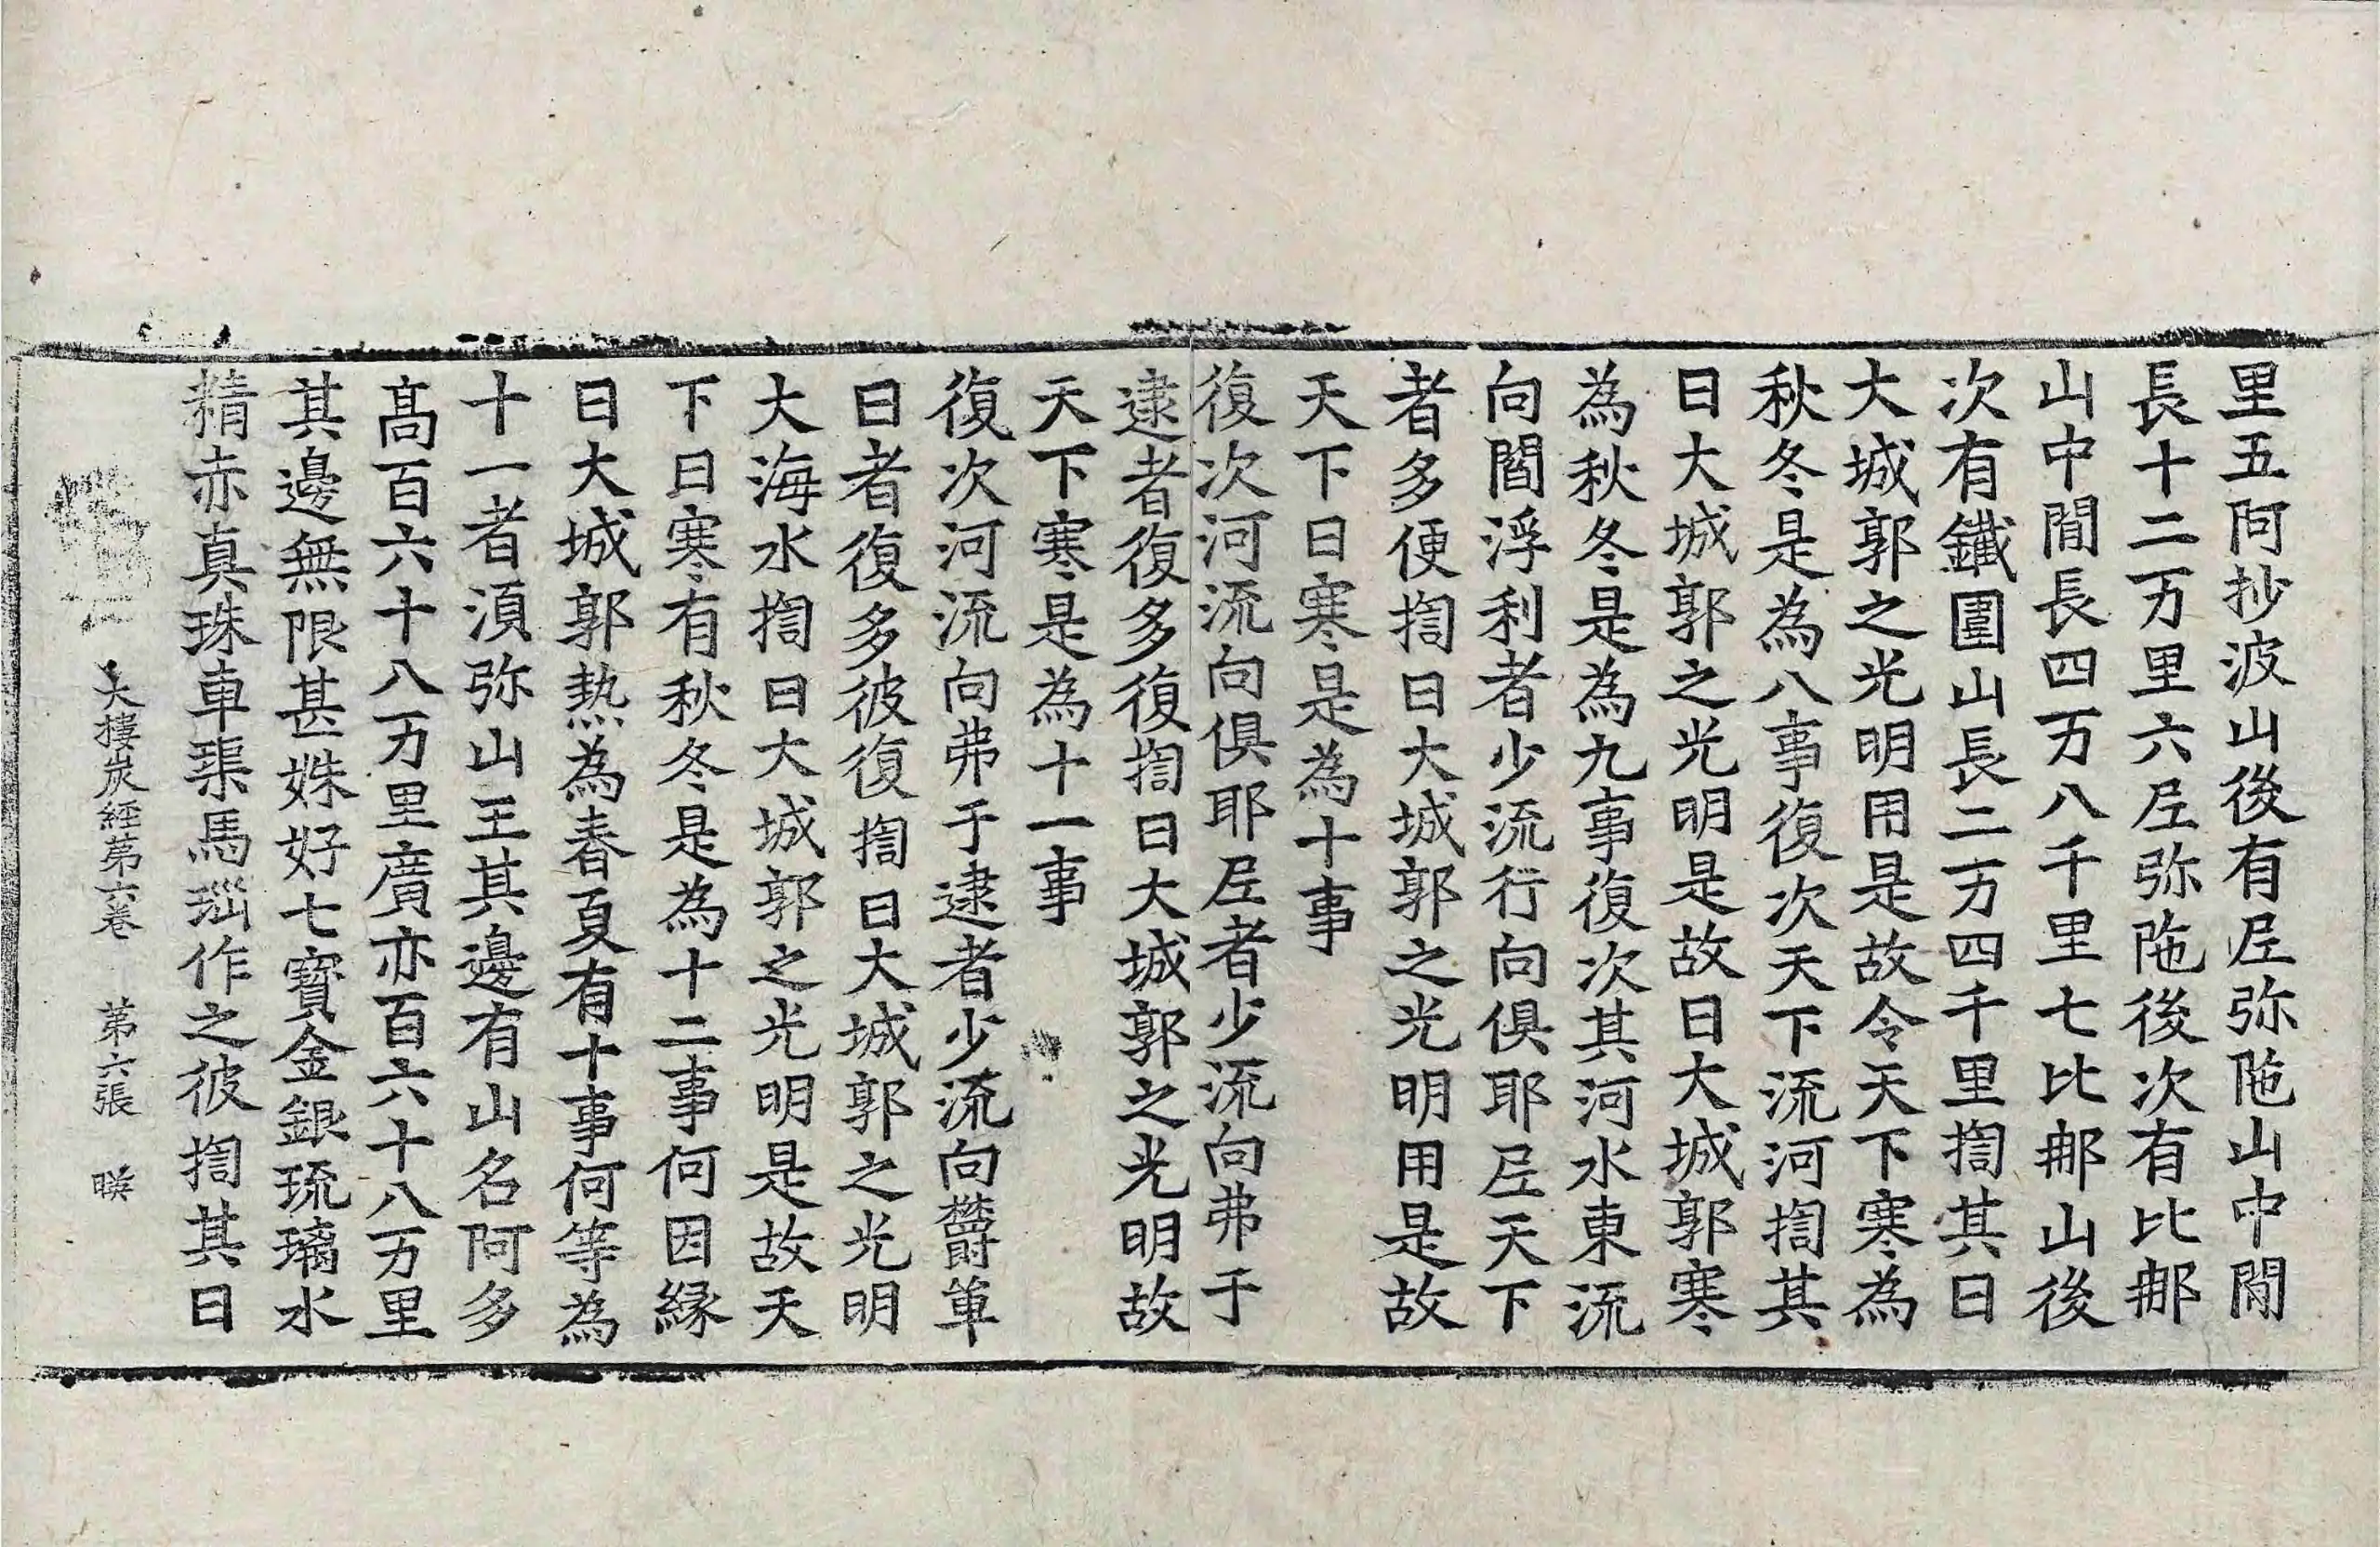 里五阿抄波山後有𡰱弥陁山中閒
長十二万里六𡰱弥陁後次有比郍
山中閒長四万八千里七比郍山後
次有鐵圍山長二万四千里揈其日
大城郭之光明用是故令天下寒為
秋冬是為八事復次天下流河揈其
日大城郭之光明是故日大城郭寒
為秋冬是為九事復次其河水東流
向閻浮利者少流行向俱耶𡰱天下
者多便揈日大城郭之光明用是故
天下日寒是為十事
復次河流向俱耶𡰱者少流向弗于
逮者復多復揈日大城郭之光明故
天下寒是為十一事
復次河流向弗于逮者少流向欝單
曰者復多彼復揈日大城郭之光明
大海水揈日大城郭之光明是故天
下日寒有秋冬是為十二事何因緣
日大城郭熱為春夏有十事何等為
十一者湏弥山王其邊有山名阿多
髙百六十八万里廣亦百六十八万里
其邊無限甚姝好七寶金銀琉璃水
精赤真珠車𤦲馬瑙作之彼揈其日
大樓炭經苐六卷 苐六張 暎